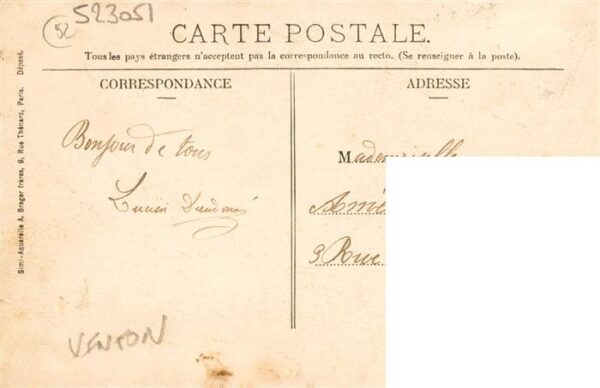 52
523051
CARTE POSTALE.
Tous les pays étrangers n'acceptent pas la correspondance au recto. (Se renseigner à la poste).
CORRESPONDANCE
Bonjour de tous
Lucien
VENTON
ADRESSE
Mademoiselle
3 Rue
Simi-Aquarelle A. Breger frères, 9, Rue Thénard, Paris. Déposé.